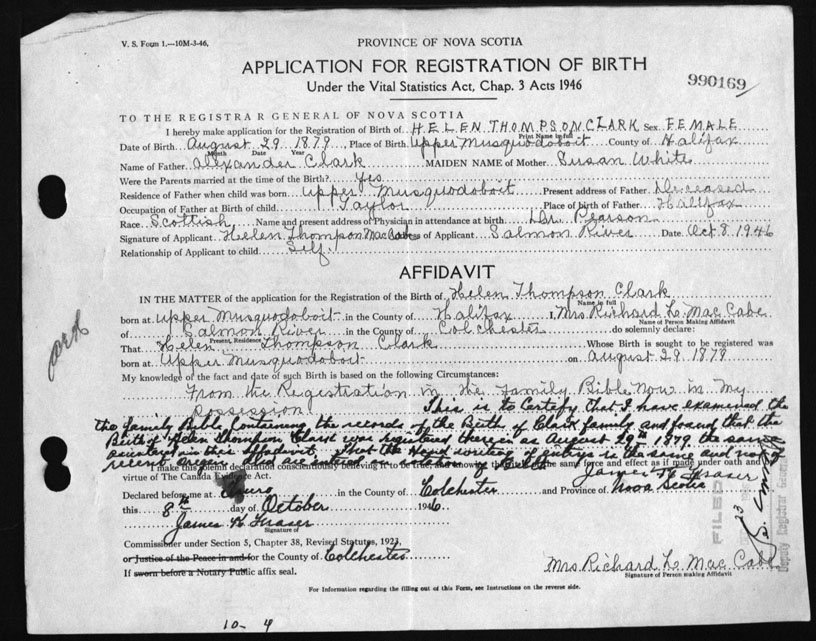 V. S. Form 1.—10M-3-46.
PROVINCE OF NOVA SCOTIA
APPLICATION FOR REGISTRATION OF BIRTH
Under the Vital Statistics Act, Chap. 3 Acts 1946
990169
TO THE REGISTRAR GENERAL OF NOVA SCOTIA
I hereby make application for the Registration of Birth of HELEN THOMPSON CLARK Sex FEMALE
Print Name in full
Date of Birth August 29 1879, Place of Birth Upper Musquodoboit County of Halifax
Month Date Year
Name of Father Alexander Clark MAIDEN NAME of Mother Susan White
Were the Parents married at the time of the Birth? Yes
Residence of Father when child was born Upper Musquodoboit Present address of Father Deceased
Occupation of Father at Birth of child Taylor Place of birth of Father Halifax
Race Scottish Name and present address of Physician in attendance at birth Dr. Pearson
Signature of Applicant Helen Thompson MacCabe Address of Applicant Salmon River Date Oct 8 1946
Relationship of Applicant to child Self.
AFFIDAVIT
IN THE MATTER of the application for the Registration of Birth of Helen Thompson Clark
Name in full
born at Upper Musquodoboit in the County of Halifax I, Mrs Richard L. MacCabe
Name of Person Making Affidavit
of Salmon River in the County of Colchester do solemnly declare:
Present Residence
That Helen Thompson Clark Whose Birth is sought to be registered was
born at Upper Musquodoboit on August 29 1879
My knowledge of the fact and date of such Birth is based on the following Circumstances:
From the Registration in the Family Bible Now in My
Possession
This is to Certify That I have examined the
the family Bible Containing the records of the Birth of Clark family and found that the
Birth of Helen Thompson Clark was registered therein as August 29th 1879 the same
as entered in this Affidavit. That the Hand writing of entrys is the same and not of
recent origin
I make this solemn declaration conscientiously believing it to be true, and knowing the same force and effect as if made under oath and
virtue of The Canada Evidence Act.
James K Fraser
Declared before me at Truro in the County of Colchester and Province of Nova Scotia
this 8th day of October 1946
James K Fraser
Signature of
Commissioner under Section 5, Chapter 38, Revised Statutes, 1923,
or Justice of the Peace in and for the County of Colchester
If sworn before a Notary Public affix seal.
Mrs Richard L. Mac Cabe
Signature of Person making Affidavit
For Information regarding the filling out of this Form, see Instructions on the reverse side.
FILED
Deputy Registrar General
23
10- 4